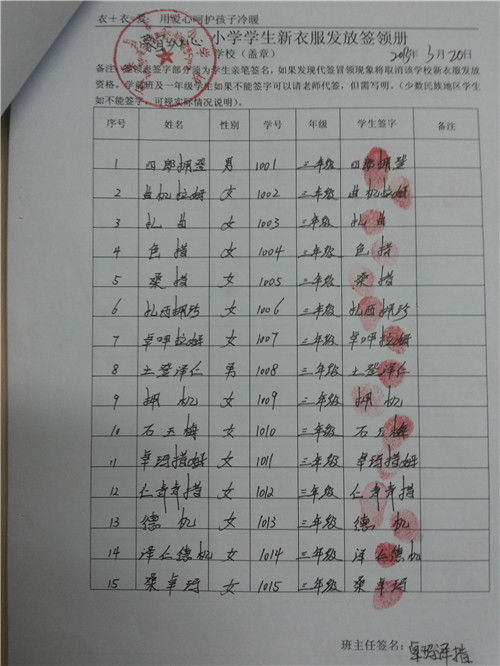 衣+衣=爱 用爱心呵护孩子冷暖
小学学生新衣服发放签领册
学校(盖章) 2013年3月20日
备注:签领表签字部分须为学生亲笔签名,如果发现代签冒领现象将取消该学校新衣服发放
资格。学前班及一年级学生如果不能签字可以请老师代签,但需写明。(少数民族地区学生
如不能签字,可视实际情况说明)。
序号 姓名 性别 学号 年级 学生签字 备注
1 四郎拥登 男 1001 三年级 四郎拥登
2 益机拉姆 女 1002 三年级 益机拉姆
3 扎西 女 1003 三年级
4 色措 女 1004 三年级 色措
5 桑措 女 1005 三年级 桑措
6 扎西拥珍 女 1006 三年级 扎西拥珍
7 卓呷拉姆 女 1007 三年级 卓呷拉姆
8 土登泽仁 男 1008 三年级 土登泽仁
9 拥机 女 1009 三年级 拥机
10 石玉梅 女 1010 三年级 石玉梅
11 卓玛措姆 女 1011 三年级 卓玛措姆
12 女 1012 三年级
13 德机 女 1013 三年级 德机
14 泽仁德机 女 1014 三年级 泽仁德机
15 桑卓玛 女 1015 三年级 桑卓玛
班主任签名: